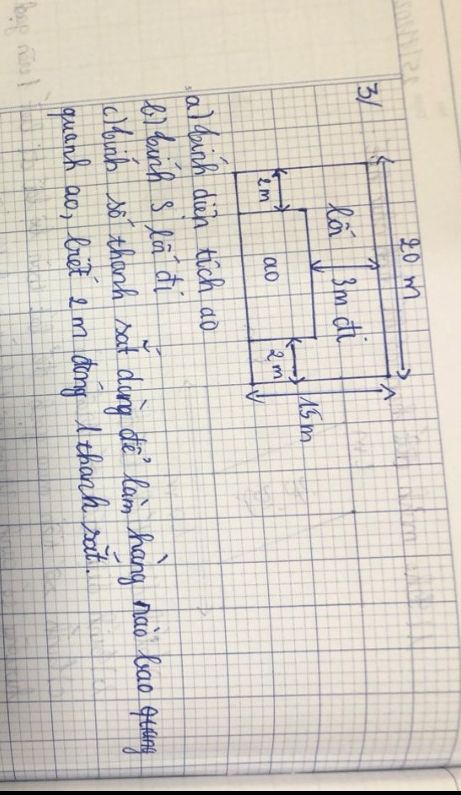 3/
20 m
lối 3m đi
2m
ao
2m
15m
a) tính diện tích ao
b) tính S lối đi
c) tính số thanh sắt dùng để làm hàng rào bao quang
quanh ao, biết 2 m đóng 1 thanh sắt.